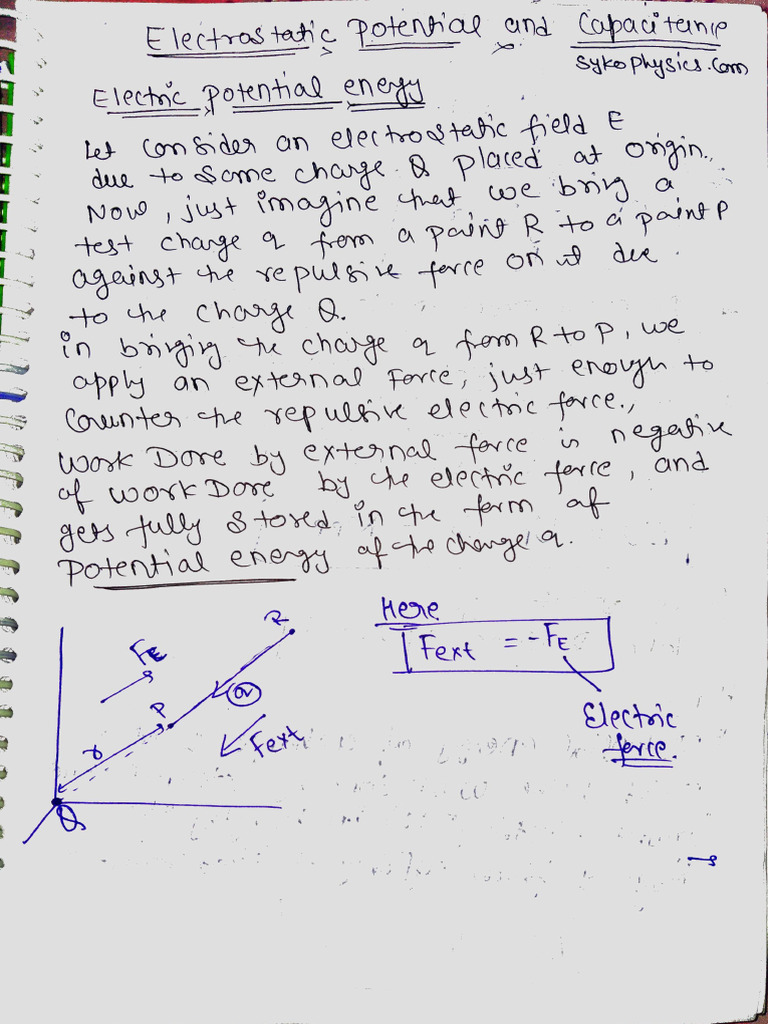 Electrostatic Potential and Capacitance
Sykophysics.com
Electric potential energy
Let consider an electrostatic field E
due to some charge Q placed at origin.
Now, just imagine that we bring a
test charge q from a point R to a point P
against the repulsive force on it due
to the charge Q.
in bringing the charge q from R to P, we
apply an external Force, just enough to
counter the repulsive electric force.,
Work Done by external force is negative
of work Done by the electric force, and
gets fully stored in the form of
Potential energy of the charge q.
Here
Fext = -FE
Electric
force.
R
FE
q
P
Fext
r
Q